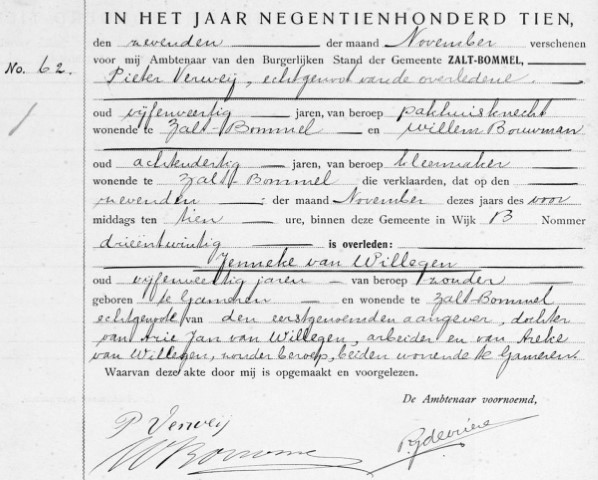 IN HET JAAR NEGENTIENHONDERD TIEN,
den zevenden der maand November verschenen
voor mij Ambtenaar van den Burgerlijken Stand der Gemeente ZALT-BOMMEL,
No. 62.
Pieter Verweij, echtgenoot van de overledene.
oud vijfenveertig jaren, van beroep pakhuisknecht
wonende te Zalt-Bommel en Willem Bouwman
oud achtendertig jaren, van beroep kleermaker
wonende te Zalt-Bommel die verklaarden, dat op den
zevenden der maand November dezes jaars des voor
middags ten tien ure, binnen deze Gemeente in Wijk B Nommer
drieëntwintig is overleden:
Jenneke van Willegen
oud vijfenveertig jaren van beroep zonder
geboren te Gameren en wonende te Zalt-Bommel
echtgenoote van den eerstgenoemden aangever, dochter
van Arie Jan van Willegen, arbeider en van Aeke
van Willegen, zonder beroep, beiden wonende te Gameren.
Waarvan deze akte door mij is opgemaakt en voorgelezen.
De Ambtenaar voornoemd,
P Verweij
W Bouwman